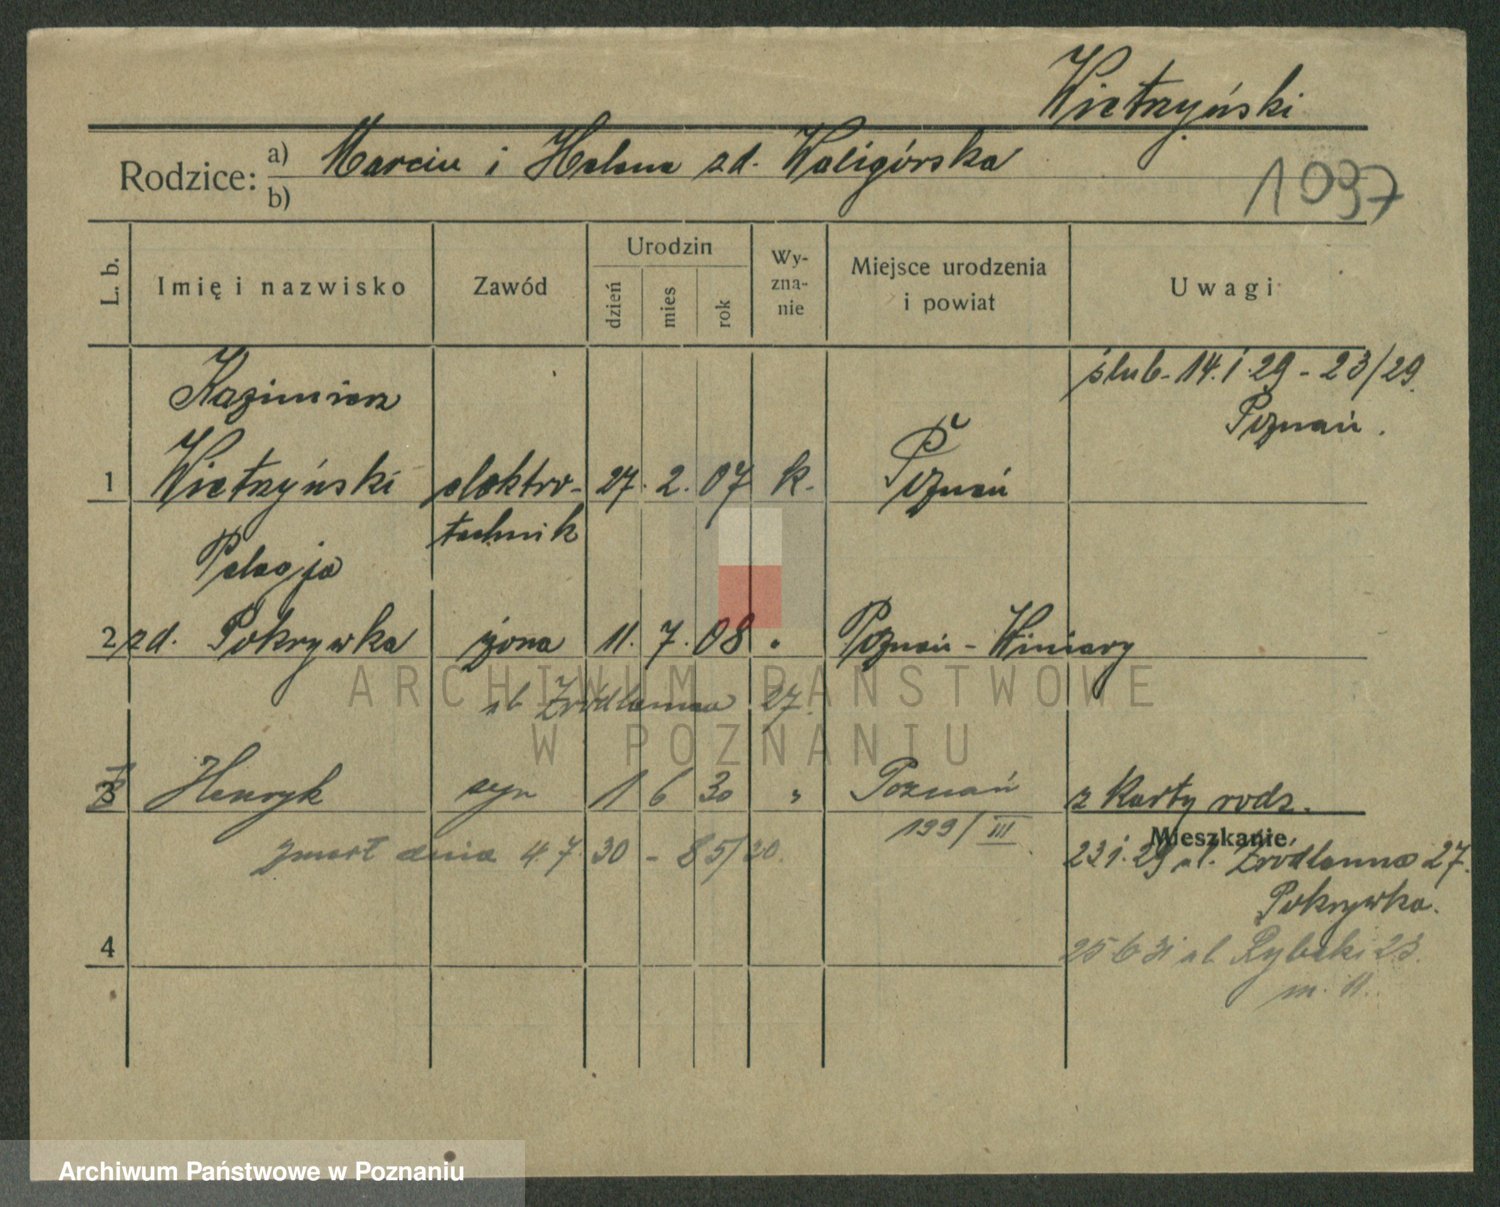 Wietrzyński
Rodzice: a) Marcin i Helena zd. Waligórska
b)
1037
L. b. Imię i nazwisko Zawód Urodzin dzień mies rok Wyznanie Miejsce urodzenia i powiat Uwagi
ślub - 14.1.29 - 23/29.
Kazimierz
Poznań.
1 Wietrzyński elektro- 27. 2. 07 k. Poznań
technik
Pelagja
2 zd. Pokrywka żona 11. 7. 08 " Poznań - Winiary
ul. Źródlanna 27.
3 Henryk syn 1 6 30 " Poznań z karty rodz.
199/III
Mieszkanie
zmarł dnia 4.7.30 - 85/30. 23.1.29 ul. Źródlanna 27.
Pokrywka.
4 25 6 31 ul. Rybaki 23.
m. 11.
ARCHIWUM PAŃSTWOWE
W POZNANIU
Archiwum Państwowe w Poznaniu